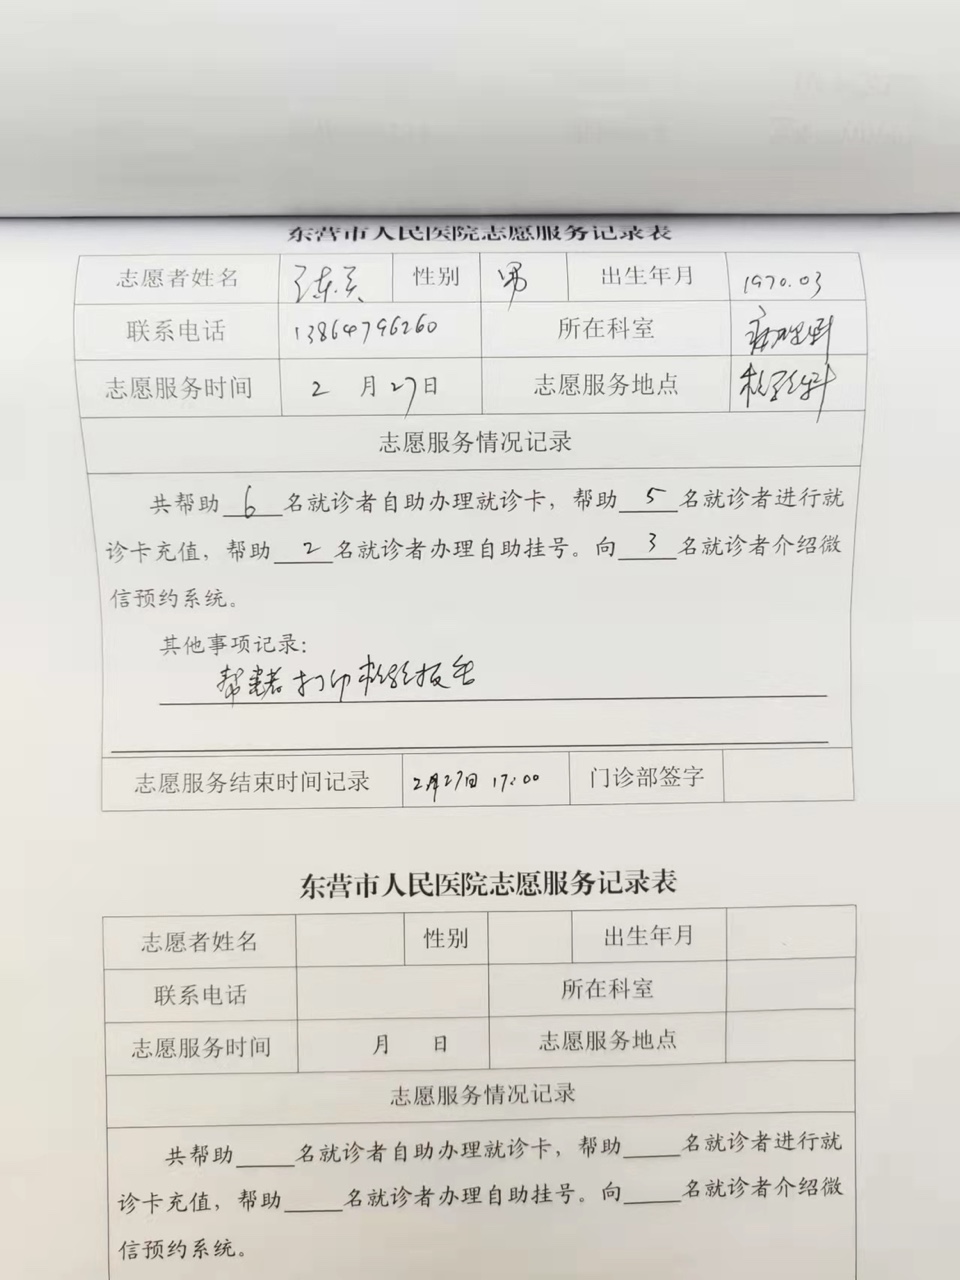 东营市人民医院志愿服务记录表
志愿者姓名 性别 男 出生年月 1970.03
联系电话 13864796260 所在科室 病理科
志愿服务时间 2 月 27 日 志愿服务地点 检验科
志愿服务情况记录
共帮助 6 名就诊者自助办理就诊卡，帮助 5 名就诊者进行就
诊卡充值，帮助 2 名就诊者办理自助挂号。向 3 名就诊者介绍微
信预约系统。
其他事项记录：
帮患者打印检验报告
志愿服务结束时间记录 2月27日 17:00 门诊部签字
东营市人民医院志愿服务记录表
志愿者姓名 性别 出生年月
联系电话 所在科室
志愿服务时间 月 日 志愿服务地点
志愿服务情况记录
共帮助____名就诊者自助办理就诊卡，帮助____名就诊者进行就
诊卡充值，帮助____名就诊者办理自助挂号。向____名就诊者介绍微
信预约系统。